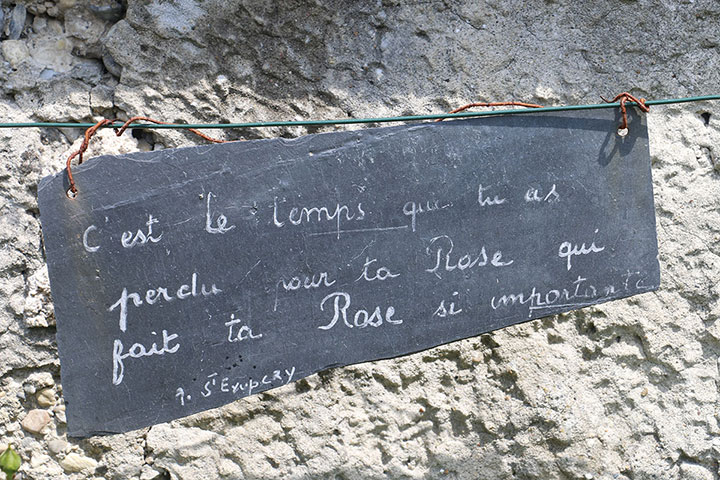 C'est le temps que tu as
perdu pour ta Rose qui
fait ta Rose si importante
A. St Exupéry